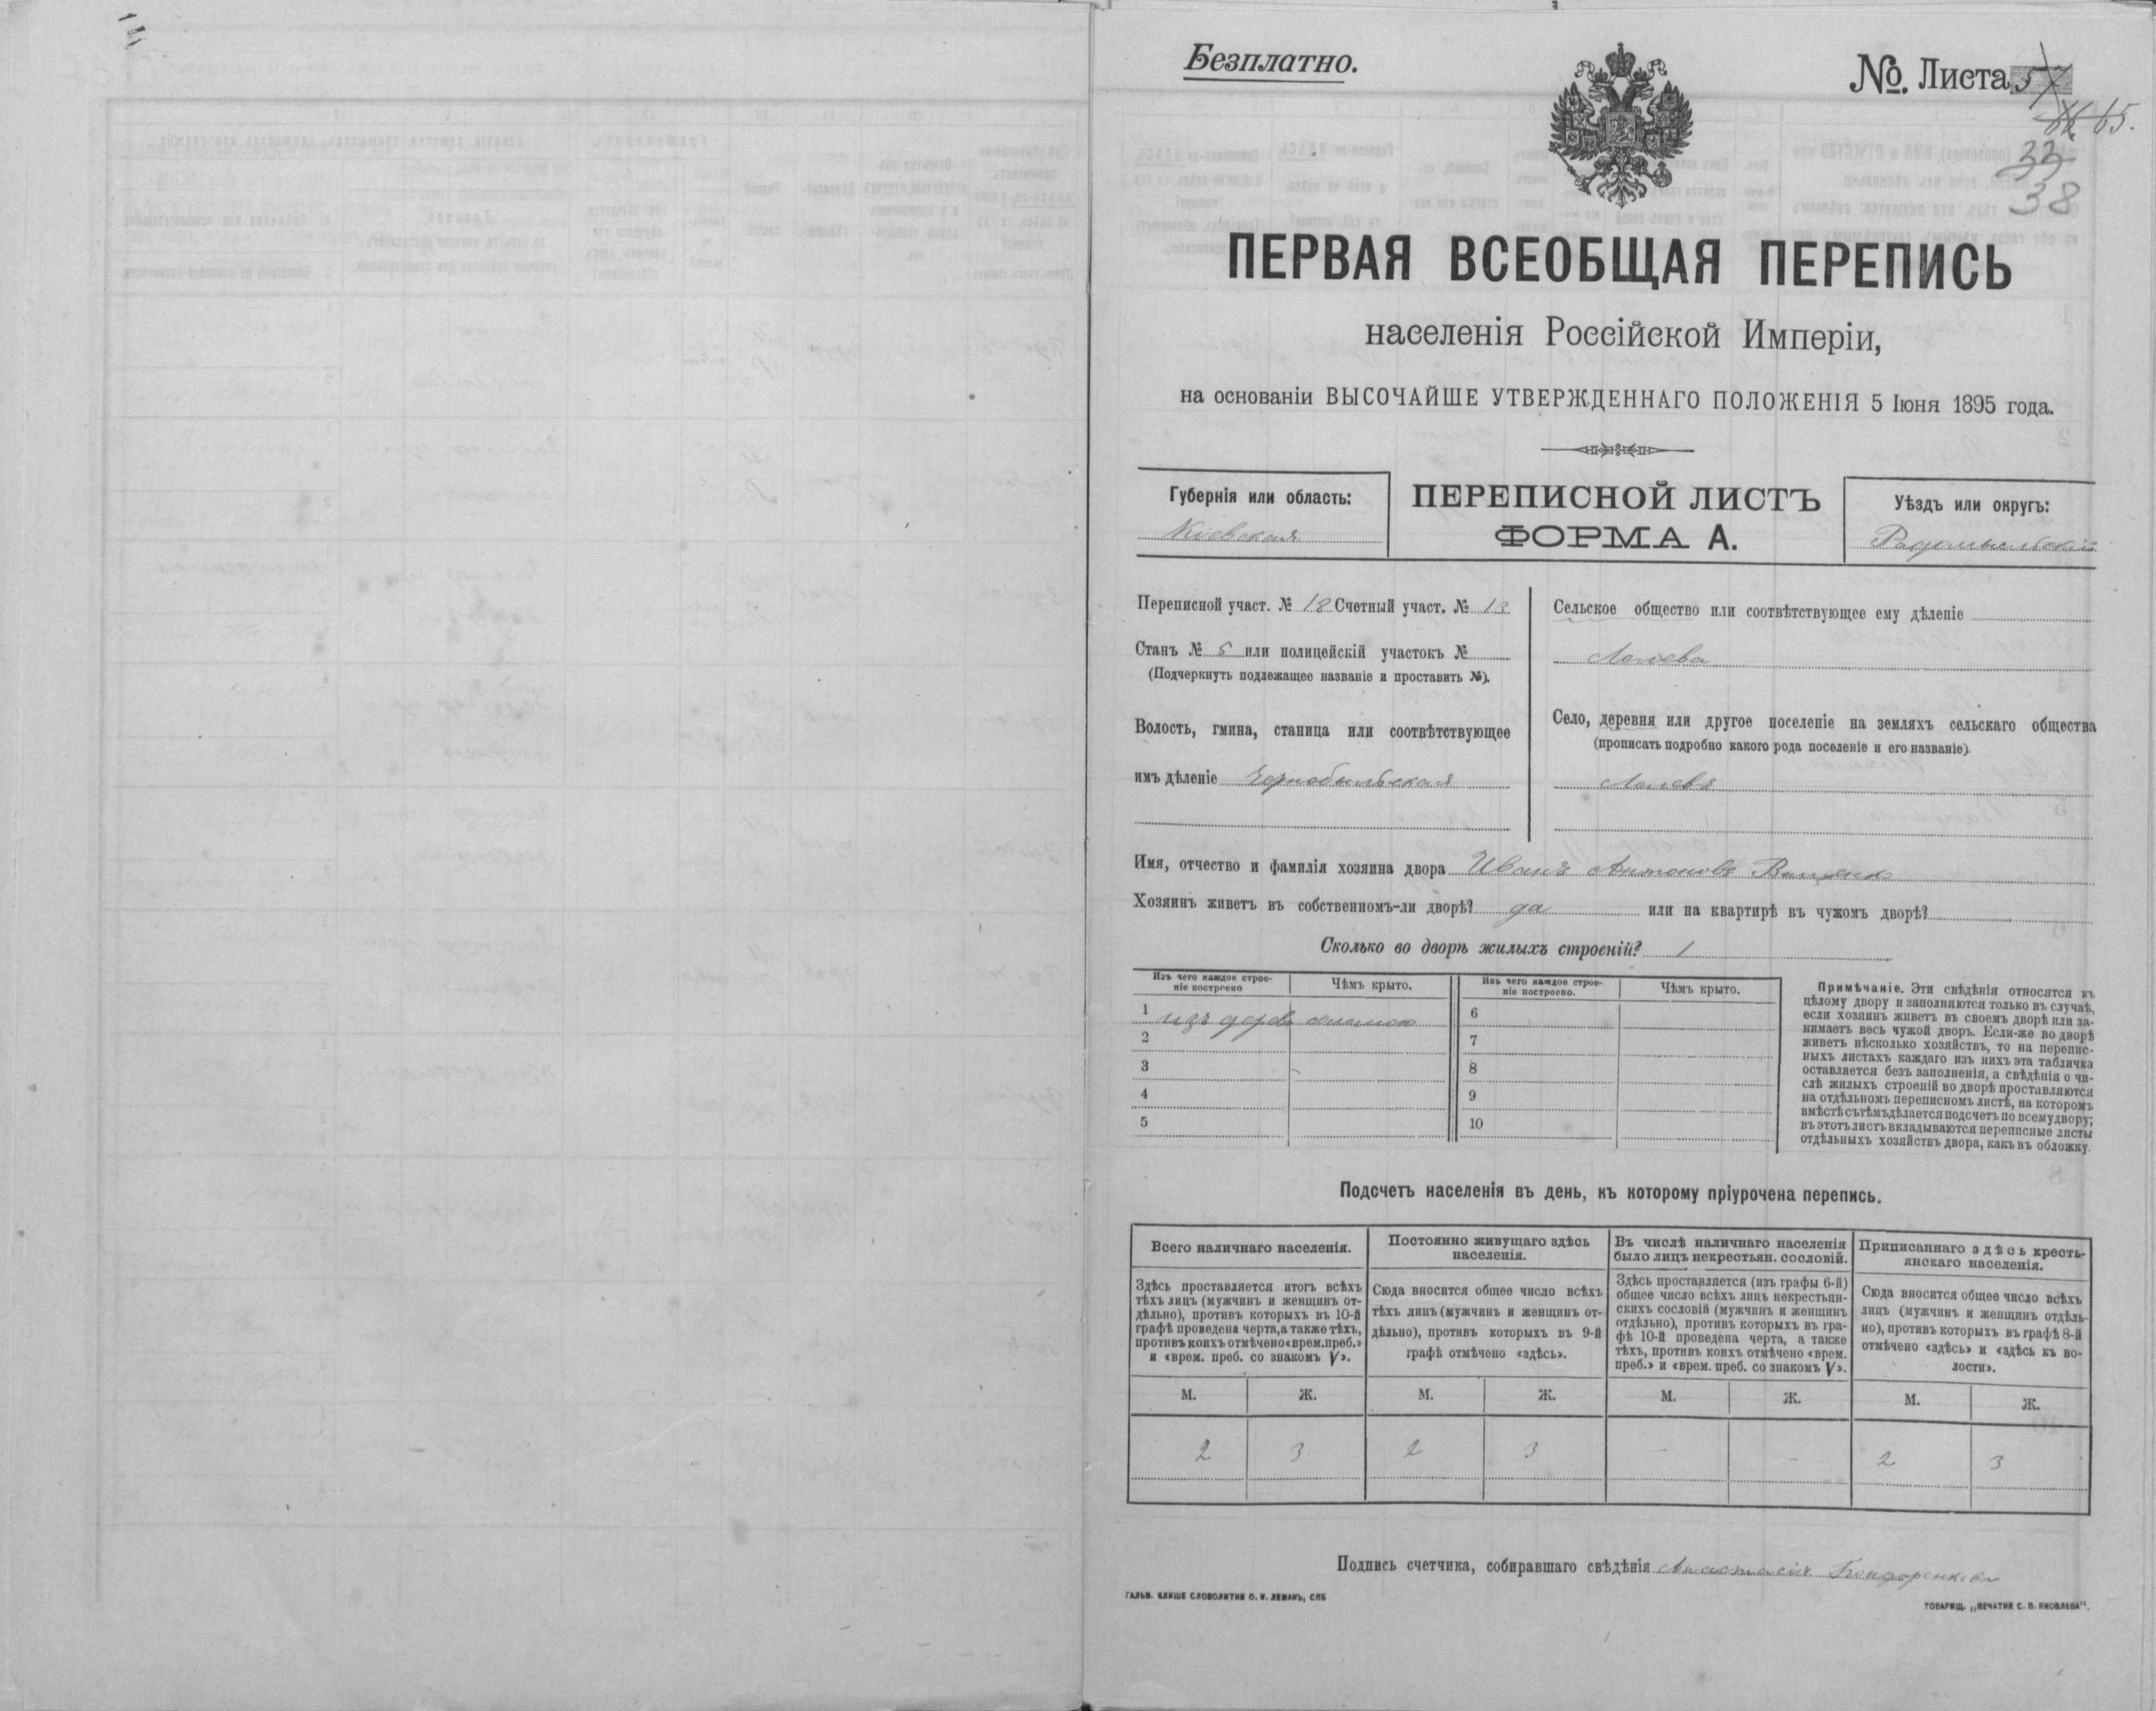 Безплатно.
№. Листа 57
65.
33
38
ПЕРВАЯ ВСЕОБЩАЯ ПЕРЕПИСЬ
населенія Россійской Имперіи,
на основаніи ВЫСОЧАЙШЕ УТВЕРЖДЕННАГО ПОЛОЖЕНІЯ 5 Іюня 1895 года.
Губернія или область:
Кіевская
ПЕРЕПИСНОЙ ЛИСТЪ
ФОРМА А.
Уѣздъ или округъ:
Радомысльскій
Переписной участ. № 18 Счетный участ. № 13
Станъ № 5 или полицейскій участокъ №
(Подчеркнуть подлежащее названіе и проставить №).
Волость, гмина, станица или соотвѣтствующее
имъ дѣленіе Чернобыльская
Сельское общество или соотвѣтствующее ему дѣленіе
Село, деревня или другое поселеніе на земляхъ сельскаго общества
(прописать подробно какого рода поселеніе и его названіе).
Имя, отчество и фамилія хозяина двора Иванъ Антоновъ
Хозяинъ живетъ въ собственномъ-ли дворѣ? да или на квартирѣ въ чужомъ дворѣ?
Сколько во дворѣ жилыхъ строеній? 1
Изъ чего каждое строе-
ніе построено
Чѣмъ крыто.
Изъ чего каждое строе-
ніе построено.
Чѣмъ крыто.
1 изъ дерев соломою
2
3
4
5
6
7
8
9
10
Примѣчаніе. Эти свѣдѣнія относятся къ
цѣлому двору и заполняются только въ случаѣ,
если хозяинъ живетъ въ своемъ дворѣ или за-
нимаетъ весь чужой дворъ. Если-же во дворѣ
живетъ нѣсколько хозяйствъ, то на перепис-
ныхъ листахъ каждаго изъ нихъ эта табличка
оставляется безъ заполненія, а свѣдѣнія о чи-
слѣ жилыхъ строеній во дворѣ проставляются
на отдѣльномъ переписномъ листѣ, на которомъ
вмѣстѣ съ тѣмъ дѣлается подсчетъ по всему двору;
въ этотъ листъ вкладываются переписные листы
отдѣльныхъ хозяйствъ двора, какъ въ обложку.
Подсчетъ населенія въ день, къ которому пріурочена перепись.
Всего наличнаго населенія.
Здѣсь проставляется итогъ всѣхъ
тѣхъ лицъ (мужчинъ и женщинъ от-
дѣльно), противъ которыхъ въ 10-й
графѣ проведена черта, а также тѣхъ,
противъ коихъ отмѣчено «врем. преб.»
и «врем. преб. со знакомъ V».
Постоянно живущаго здѣсь
населенія.
Сюда вносится общее число всѣхъ
тѣхъ лицъ (мужчинъ и женщинъ от-
дѣльно), противъ которыхъ въ 9-й
графѣ отмѣчено «здѣсь».
Въ числѣ наличнаго населенія
было лицъ некрестьян. сословій.
Здѣсь проставляется (изъ графы 6-й)
общее число всѣхъ лицъ некрестьян-
скихъ сословій (мужчинъ и женщинъ
отдѣльно), противъ которыхъ въ гра-
фѣ 10-й проведена черта, а также
тѣхъ, противъ коихъ отмѣчено «врем.
преб.» и «врем. преб. со знакомъ V».
Приписаннаго здѣсь кресть-
янскаго населенія.
Сюда вносится общее число всѣхъ
лицъ (мужчинъ и женщинъ отдѣль-
но), противъ которыхъ въ графѣ 8-й
отмѣчено «здѣсь» и «здѣсь къ во-
лости».
М. Ж. М. Ж. М. Ж. М. Ж.
2 3 2 3 - - 2 3
Подпись счетчика, собиравшаго свѣдѣнія Анастасія Бондаренкова
ГАЛЬВ. КЛИШЕ СЛОВОЛИТНИ О. И. ЛЕМАНЪ, СПБ
ТОВАРИЩ. „ПЕЧАТНЯ С. П. ЯКОВЛЕВА".